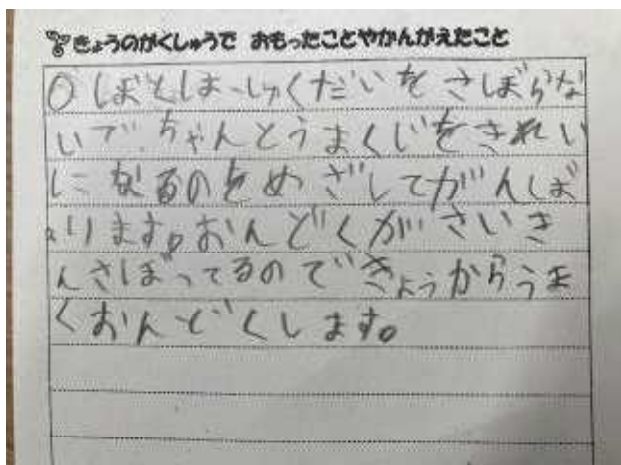 きょうのがくしゅうで おもったことやかんがえたこと
○ ぼくしはしゅくだいを さぼらな
いで、ちゃんとうまくじをきれい
になるのをめざしてがんば
ります。おんどくがさいき
んさぼってるのできょうからうま
くおんどくします。